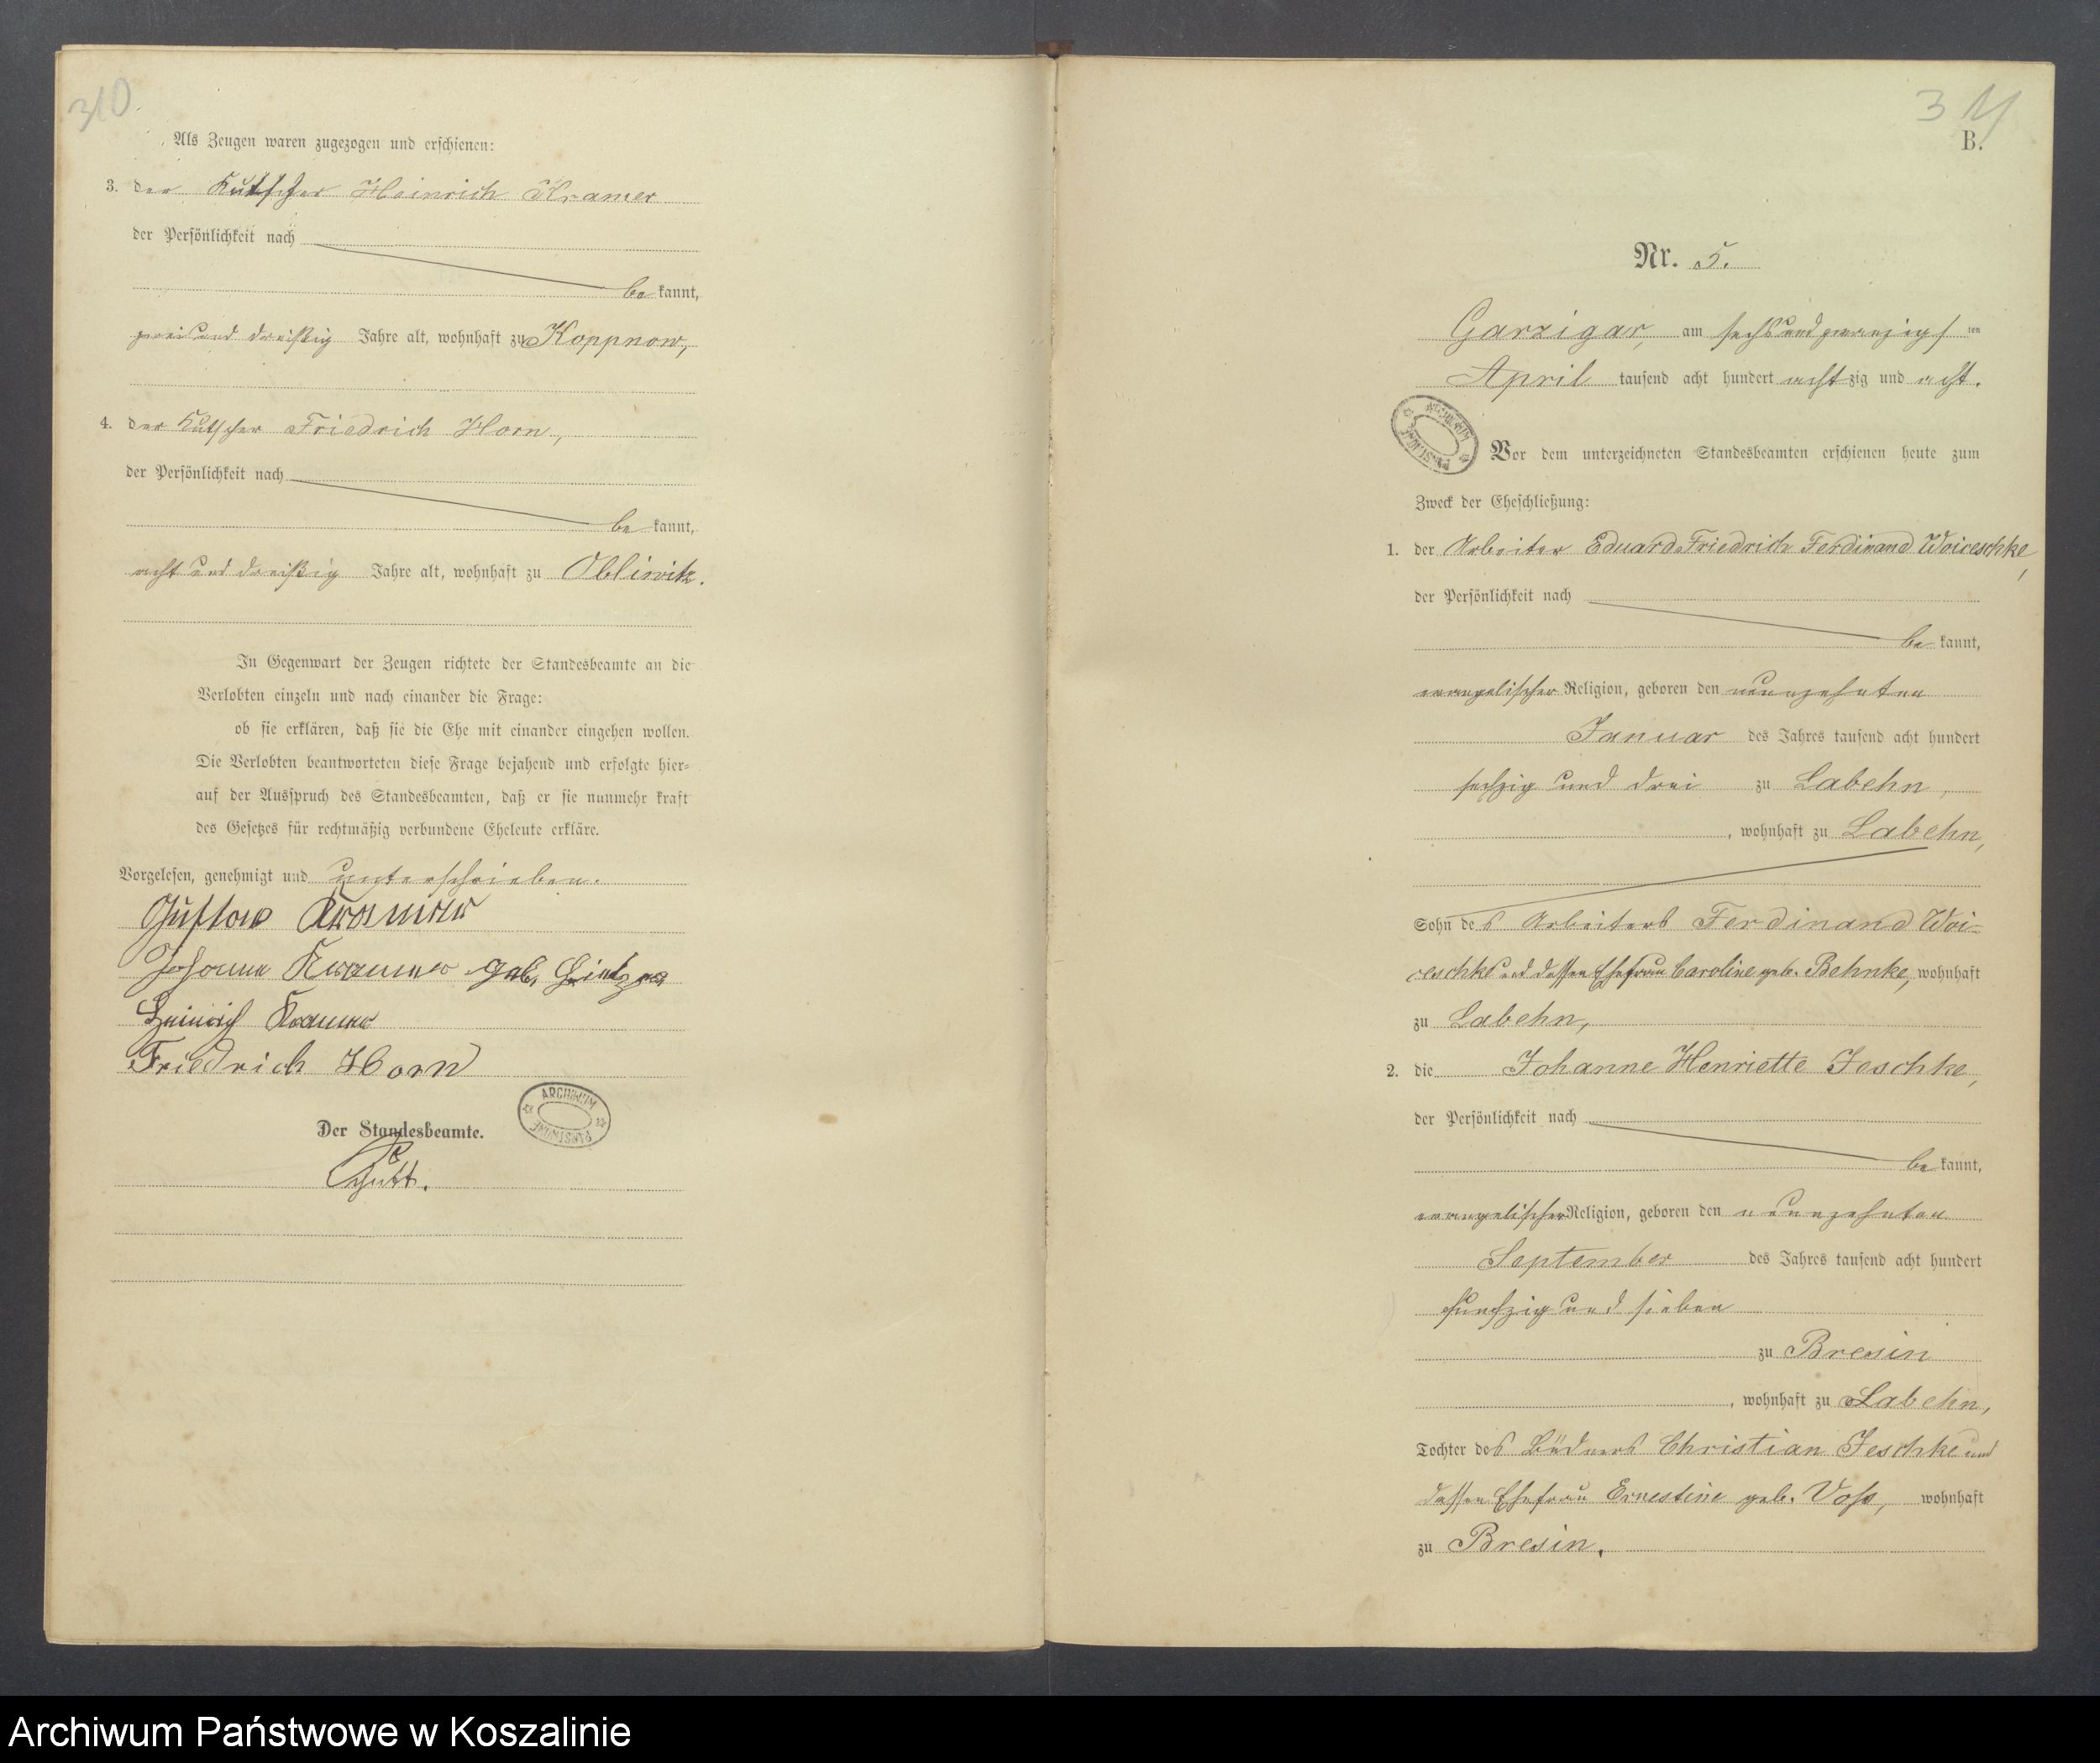 310
Als Zeugen waren zugezogen und erschienen:
3. der Kutscher Heinrich Kramer
der Persönlichkeit nach
be kannt,
zwei und dreißig Jahre alt, wohnhaft zu Koppnow,
4. der Kutscher Friedrich Horn,
der Persönlichkeit nach
be kannt,
acht und dreißig Jahre alt, wohnhaft zu Obliwitz.
In Gegenwart der Zeugen richtete der Standesbeamte an die
Verlobten einzeln und nach einander die Frage:
ob sie erklären, daß sie die Ehe mit einander eingehen wollen.
Die Verlobten beantworteten diese Frage bejahend und erfolgte hier-
auf der Ausspruch des Standesbeamten, daß er sie nunmehr kraft
des Gesetzes für rechtmäßig verbundene Eheleute erkläre.
Vorgelesen, genehmigt und unterschrieben.
Gustav
Johanne Kramer geb.
Heinrich Kramer
Friedrich Horn
Der Standesbeamte.
ARCHIWUM PAŃSTWOWE
B.
Nr. 5.
Garzigar, am sechsundzwanzigsten
April tausend acht hundert achtzig und acht.
ARCHIWUM PAŃSTWOWE
Vor dem unterzeichneten Standesbeamten erschienen heute zum
Zweck der Eheschließung:
1. der Arbeiter Eduard Friedrich Ferdinand Woiceschke,
der Persönlichkeit nach
be kannt,
evangelischer Religion, geboren den neunzehnten
Januar des Jahres tausend acht hundert
sechzig und drei zu Labehn,
, wohnhaft zu Labehn,
Sohn des Arbeiters Ferdinand Woi-
ceschke und dessen Ehefrau Caroline geb. Behnke, wohnhaft
zu Labehn,
2. die Johanne Henriette Jeschke,
der Persönlichkeit nach
be kannt,
evangelischer Religion, geboren den neunzehnten
September des Jahres tausend acht hundert
funfzig und sieben
zu Bresin
, wohnhaft zu Labehn,
Tochter des Büdners Christian Jeschke und
dessen Ehefrau Ernestine geb. Voss, wohnhaft
zu Bresin.
Archiwum Państwowe w Koszalinie